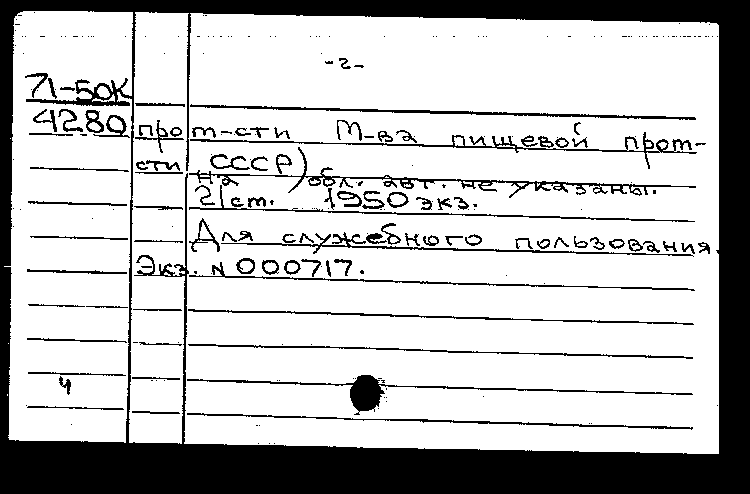 -2-
71-50К
4280 пром-сти М-ва пищевой пром-
сти СССР)
На обл. авт. не указаны.
21 ст. 1950 экз.
Для служебного пользования.
Экз. N 000717.
4